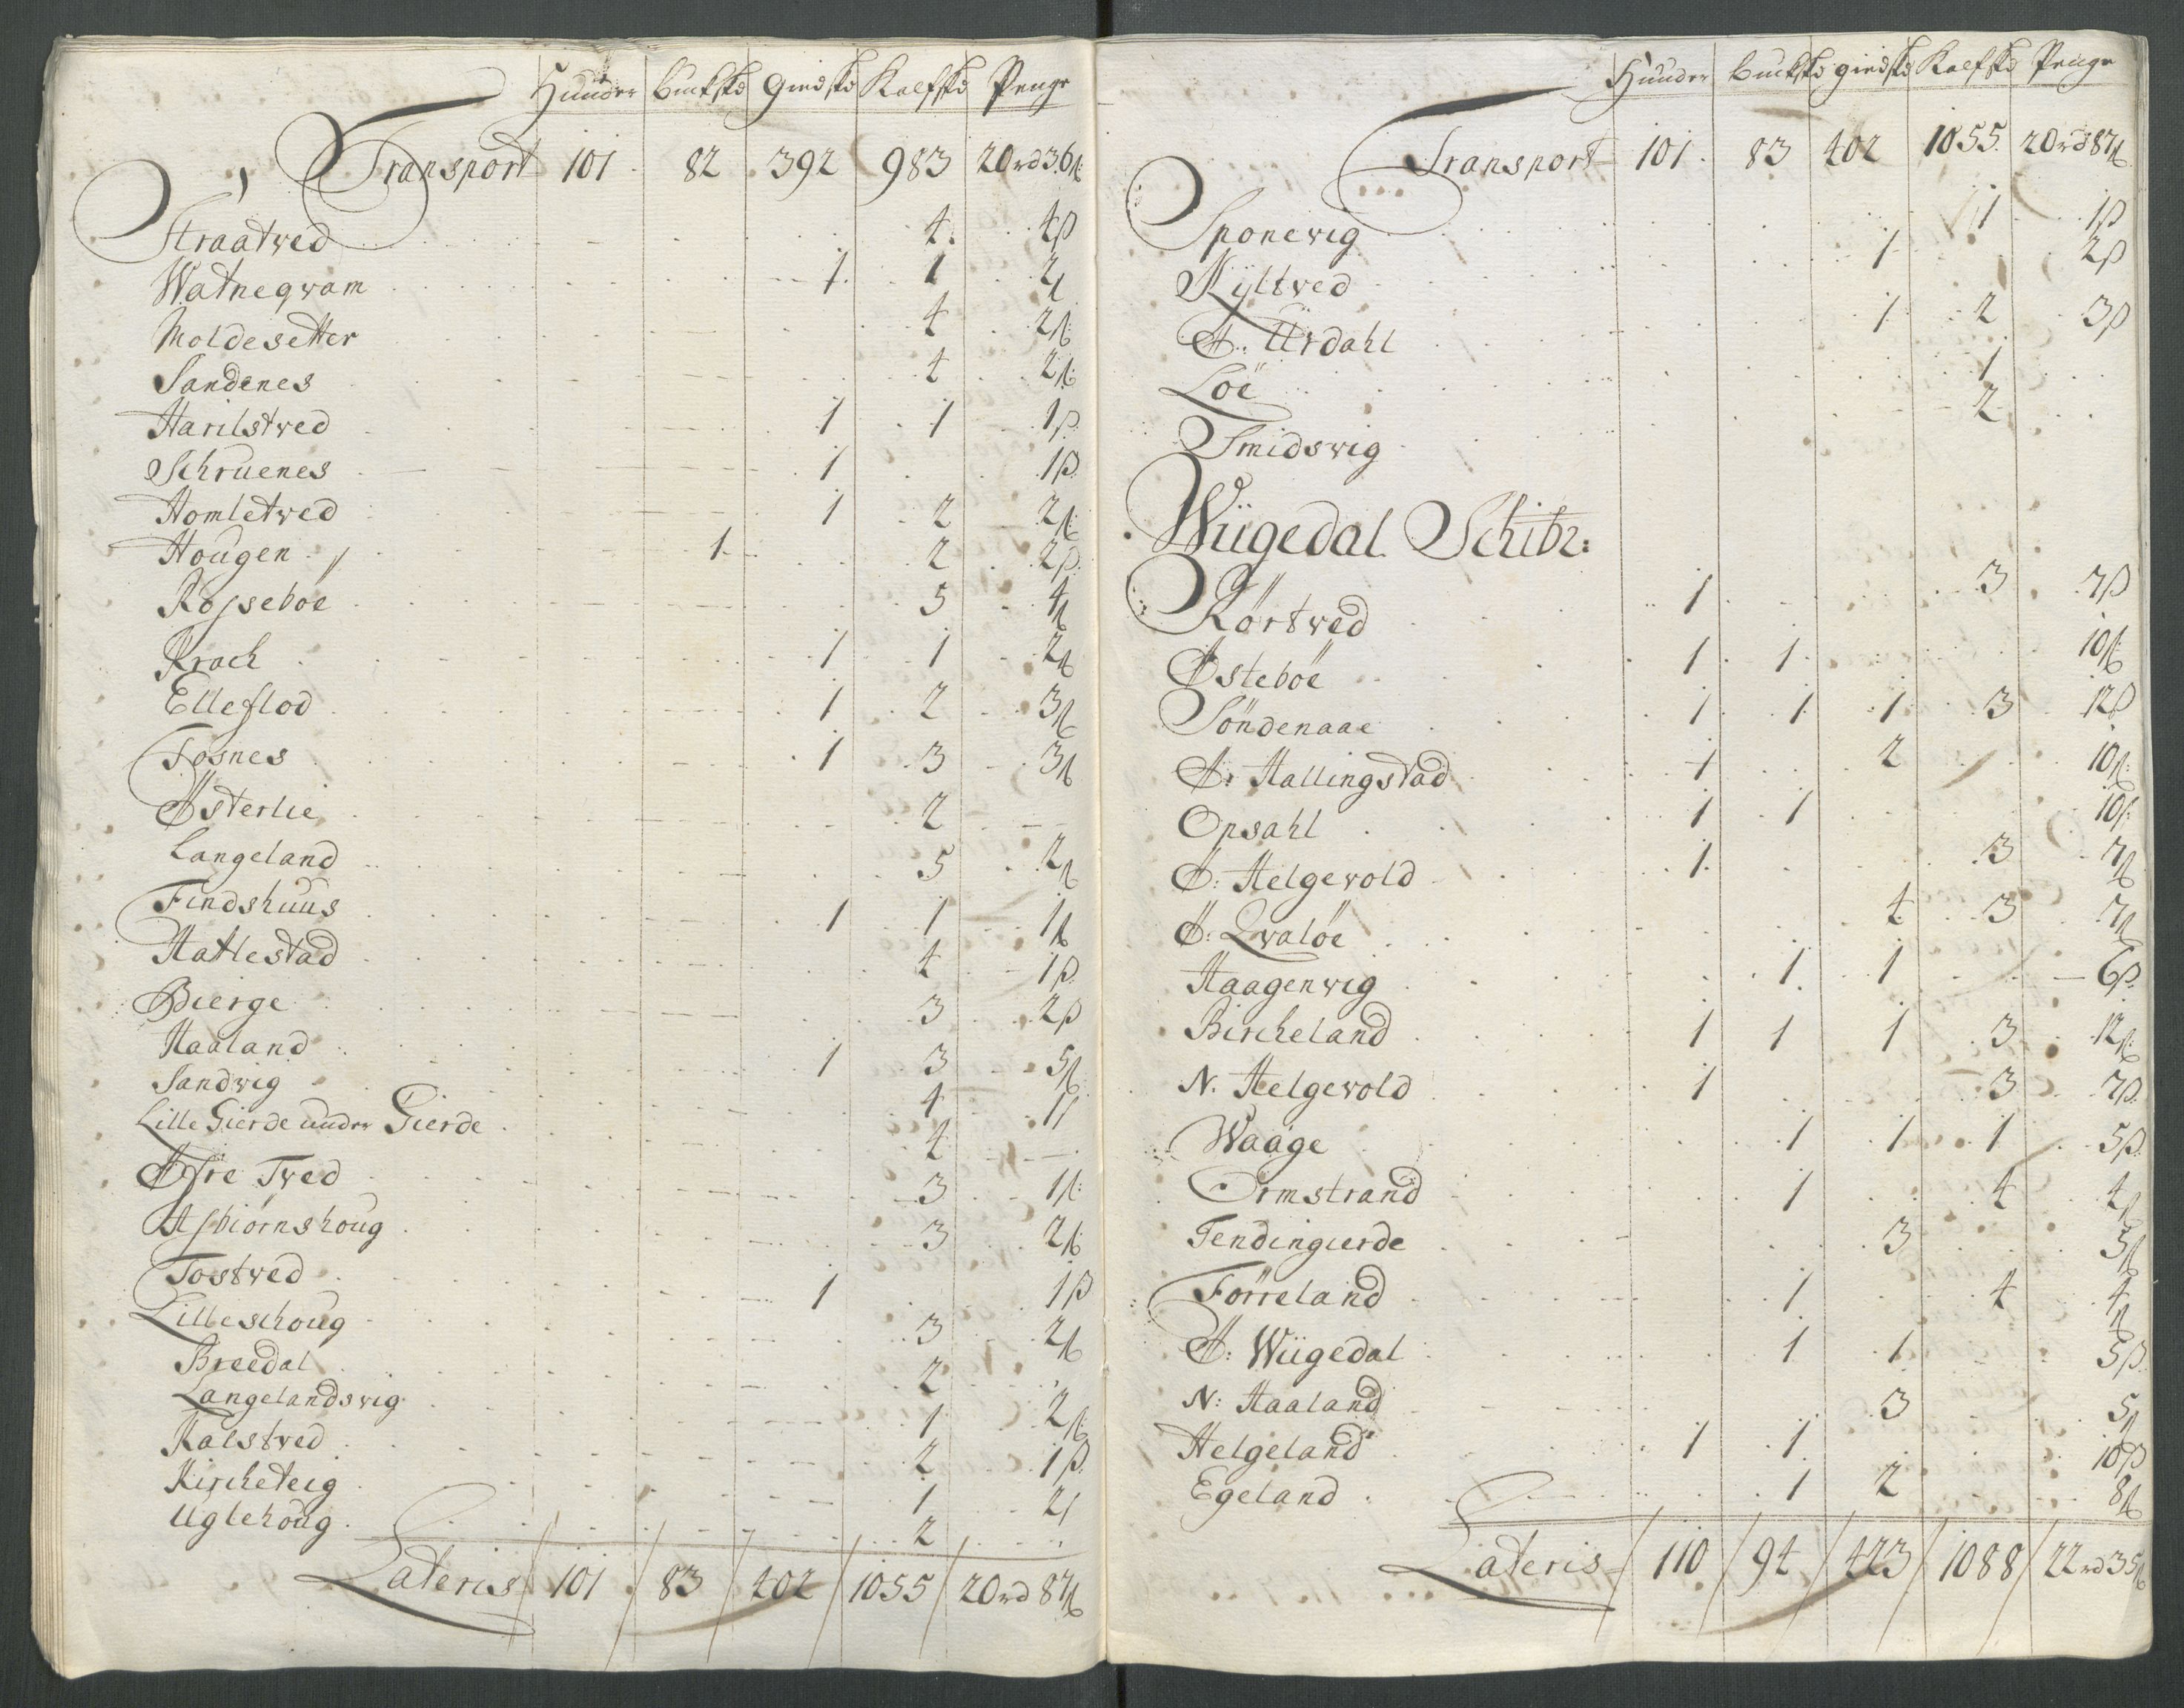 Huuder Buckskd Giedskd Kalfskd Penge
Transport 101 82 392 983 20rd 36ß
Straatved 4 4ß
Watneqvam 1 1 2ß
Moldesetter 4 2ß
Sandenes 4 2ß
Harilstved 1 1 1ß
Schruenes 1 1ß
Homletved 1 2 2ß
Hougen 1 2 2ß
Røsseboe 5 4ß
Krach 1 1 2ß
Elleflod 1 2 3ß
Fosnes 1 3 3ß
Østerlie 2
Langeland 5 2ß
Findshuus 1 1 1ß
Hatlestad 4 1ß
Bierge 3 2ß
Haaland 1 3 5ß
Sandvig 4 1ß
Lille Gierde under Gierde 4
Øfre Tved 3 1ß
Asbiørnshoug 3 2ß
Tostved 1 1ß
Lilleschoug 3 2ß
Breedal 2
Langelandsvig 1 2ß
Kalstved 2 1ß
Kircheteig 1 2ß
Uglehoug 2
Lateris 101 83 402 1055 20rd 87ß
Huuder Buckskd Giedskd Kalfskd Penge
Transport 101 83 402 1055 20rd 87ß
Sponevig 1 1ß
Kÿltved 1 2ß
Ø: Urdahl 1 2 3ß
Loë 1
Smidsvig 2
Wiigedal Schibr:
Rörtved 1 3 7ß
Østeböe 1 1 10ß
Söndenaae 1 1 1 3 12ß
Ø: Hallingstad 1 2 10ß
Opsahl 1 1 10ß
Ø: Helgevold 1 3 7ß
Ø: Qvalöe 4 3 7ß
Haagenvig 1 1 6ß
Bircheland 1 1 1 3 12ß
N. Helgevold 1 3 7ß
Waage 1 1 1 5ß
Ormstrand 1 4 4ß
Tendingierde 3 3ß
Förreland 1 4 4ß
Ø: Wiigedal 1 1 5ß
N: Haaland 3 5ß
Helgeland 1 1 10ß
Egeland 1 2 8ß
Lateris 110 94 423 1088 22rd 35ß